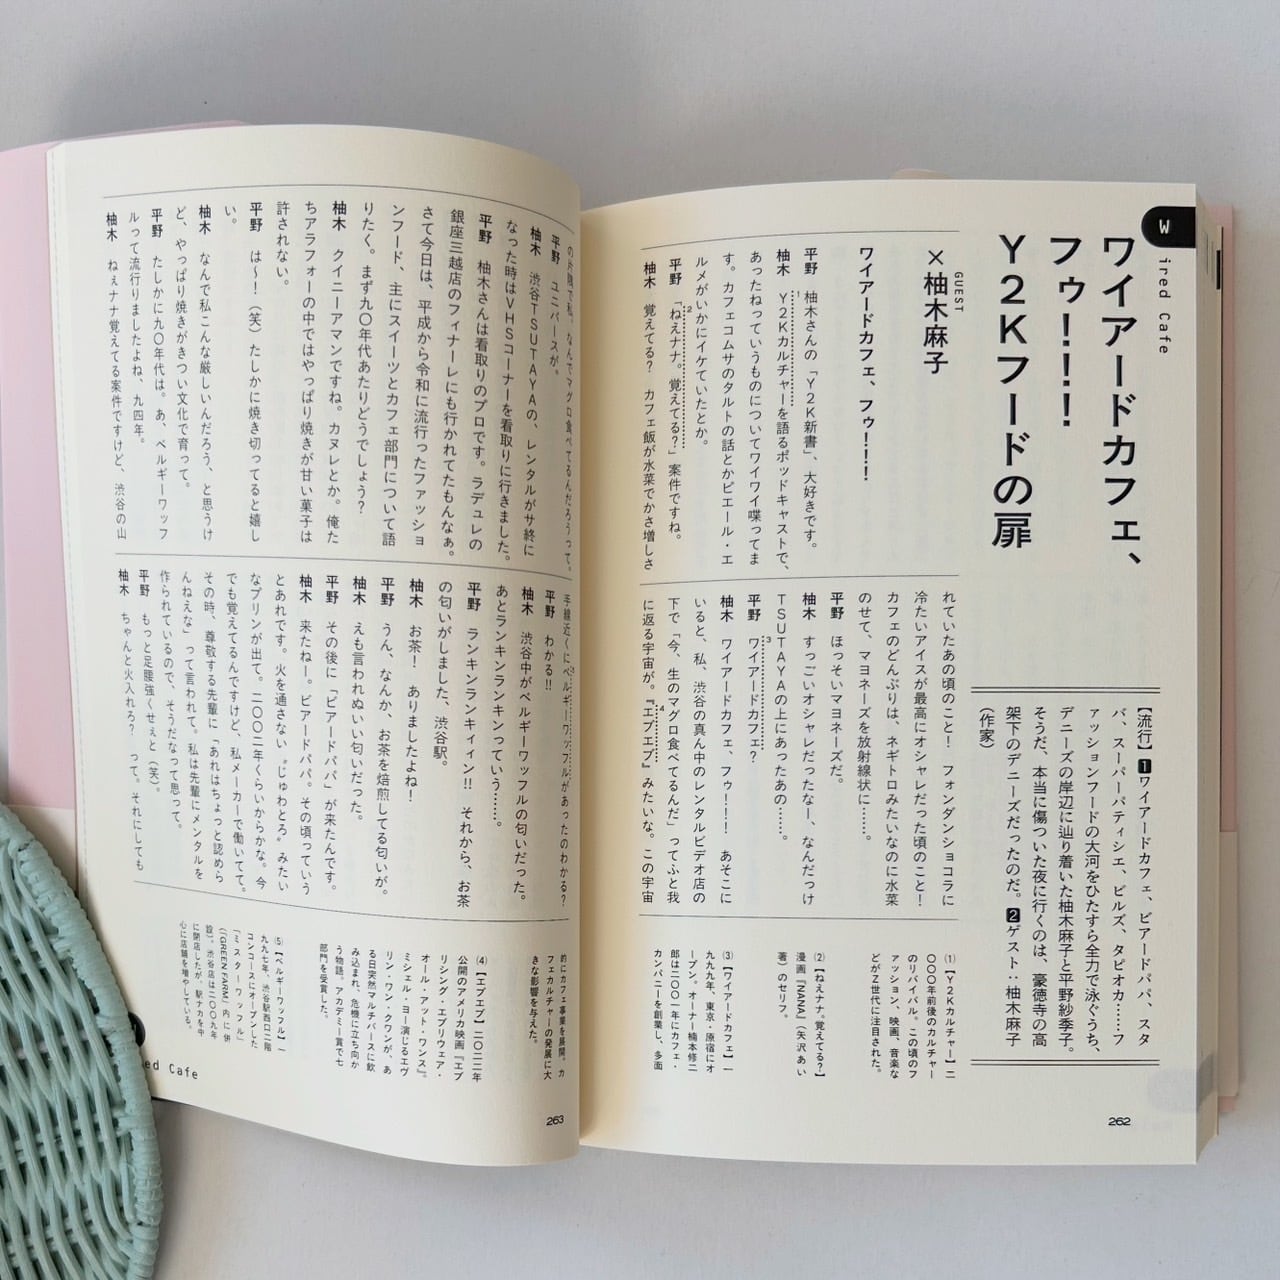 Wired Cafe
ワイアードカフェ、
フゥ!!!!
Y2Kフードの扉
GUEST
×柚木麻子
【流行】❶ワイアードカフェ、ビアードパパ、スタ
バ、スーパーパティシエ、ビルズ、タピオカ……フ
ァッションフードの大河をひたすら全力で泳ぐうち、
デニーズの岸辺に辿り着いた柚木麻子と平野紗季子。
そうだ、本当に傷ついた夜に行くのは、豪徳寺の高
架下のデニーズだったのだ。❷ゲスト:柚木麻子
(作家)
ワイアードカフェ、フゥ!!!
平野 柚木さんの「Y2K新書」、大好きです。
柚木 Y2Kカルチャーを語るポッドキャストで、
あったねっていうものについてワイワイ喋ってま
す。カフェコムサのタルトの話とかピエール・エ
ルメがいかにイケていたとか。
平野 「ねえナナ。覚えてる?」案件ですね。
柚木 覚えてる? カフェ飯が水菜でかさ増しさ
れていたあの頃のこと! フォンダンショコラに
冷たいアイスが最高にオシャレだった頃のこと!
カフェのどんぶりは、ネギトロみたいなのに水菜
のせて、マヨネーズを放射線状に……。
平野 ほっそいマヨネーズだ。
柚木 すっごいオシャレだったなー、なんだっけ
TSUTAYAの上にあったあの……。
平野 ワイアードカフェ?
柚木 ワイアードカフェ、フゥ!!! あそこに
いると、私、渋谷の真ん中のレンタルビデオ店の
下で「今、生のマグロ食べてるんだ」ってふと我
に返る宇宙が。『エブエブ』みたいな。この宇宙
(1)【Y2Kカルチャー】二
〇〇〇年前後のカルチャー
のリバイバル。この頃のフ
ァッション、映画、音楽な
どがZ世代に注目された。
(2)【ねえナナ。覚えてる?】
漫画『NANA』(矢沢あい
著)のセリフ。
(3)【ワイアードカフェ】一
九九九年、東京・原宿にオ
ープン。オーナー楠本修二
郎は二〇〇一年にカフェ・
カンパニーを創業し、多面
262
の片隅で私、なんでマグロ食べてるんだろうって。
平野 ユニバースが。
柚木 渋谷TSUTAYAの、レンタルがサ終に
なった時はVHSコーナーを看取りに行きました。
平野 柚木さんは看取りのプロです。ラデュレの
銀座三越店のフィナーレにも行かれてたもんなぁ。
さて今日は、平成から令和に流行ったファッショ
ンフード、主にスイーツとカフェ部門について語
りたく。まず九〇年代あたりどうでしょう?
柚木 クイニーアマンですね。カヌレとか。俺た
ちアラフォーの中ではやっぱり焼きが甘い菓子は
許されない。
平野 は〜!(笑)たしかに焼き切ってると嬉し
い。
柚木 なんで私こんな厳しいんだろう、と思うけ
ど、やっぱり焼きがきつい文化で育って。
平野 たしかに九〇年代は。あ、ベルギーワッフ
ルって流行りましたよね、九四年。
柚木 ねぇナナ覚えてる案件ですけど、渋谷の山
手線近くにベルギーワッフルがあったのわかる?
平野 わかる!!
柚木 渋谷中がベルギーワッフルの匂いだった。
あとランキンランキンっていう……。
平野 ランキンランキィィン!! それから、お茶
の匂いがしました、渋谷駅。
柚木 お茶! ありましたよね!
平野 うん、なんか、お茶を焙煎してる匂いが。
柚木 えも言われぬいい匂いだった。
平野 その後に「ビアードパパ」が来たんです。
柚木 来たねー。ビアードパパ。その頃っていう
とあれです。火を通さない〝じゅわとろ〟みたい
なプリンが出て。二〇〇二年くらいからかな。今
でも覚えてるんですけど、私メーカーで働いてて。
その時、尊敬する先輩に「あれはちょっと認めら
んねえな」って言われて。私は先輩にメンタルを
作られているので、そうだなって思って。
平野 もっと足腰強くせぇと(笑)。
柚木 ちゃんと火入れろ? って。それにしても
的にカフェ事業を展開。カ
フェカルチャーの発展に大
きな影響を与えた。
(4)【エブエブ】二〇二二年
公開のアメリカ映画『エブ
リシング・エブリウェア・
オール・アット・ワンス』。
ミシェル・ヨー演じるエヴ
リン・ワン・クワンが、あ
る日突然マルチバースに飲
み込まれ、危機に立ち向か
う物語。アカデミー賞で七
部門を受賞した。
(5)【ベルギーワッフル】一
九九七年、渋谷駅西口二階
コンコースにオープンした
「ミスターワッフル」
(「GREEN FARM」内に併
設)。渋谷店は二〇〇九年
に閉店したが、駅ナカを中
心に店舗を増やしている。
263
ed Cafe